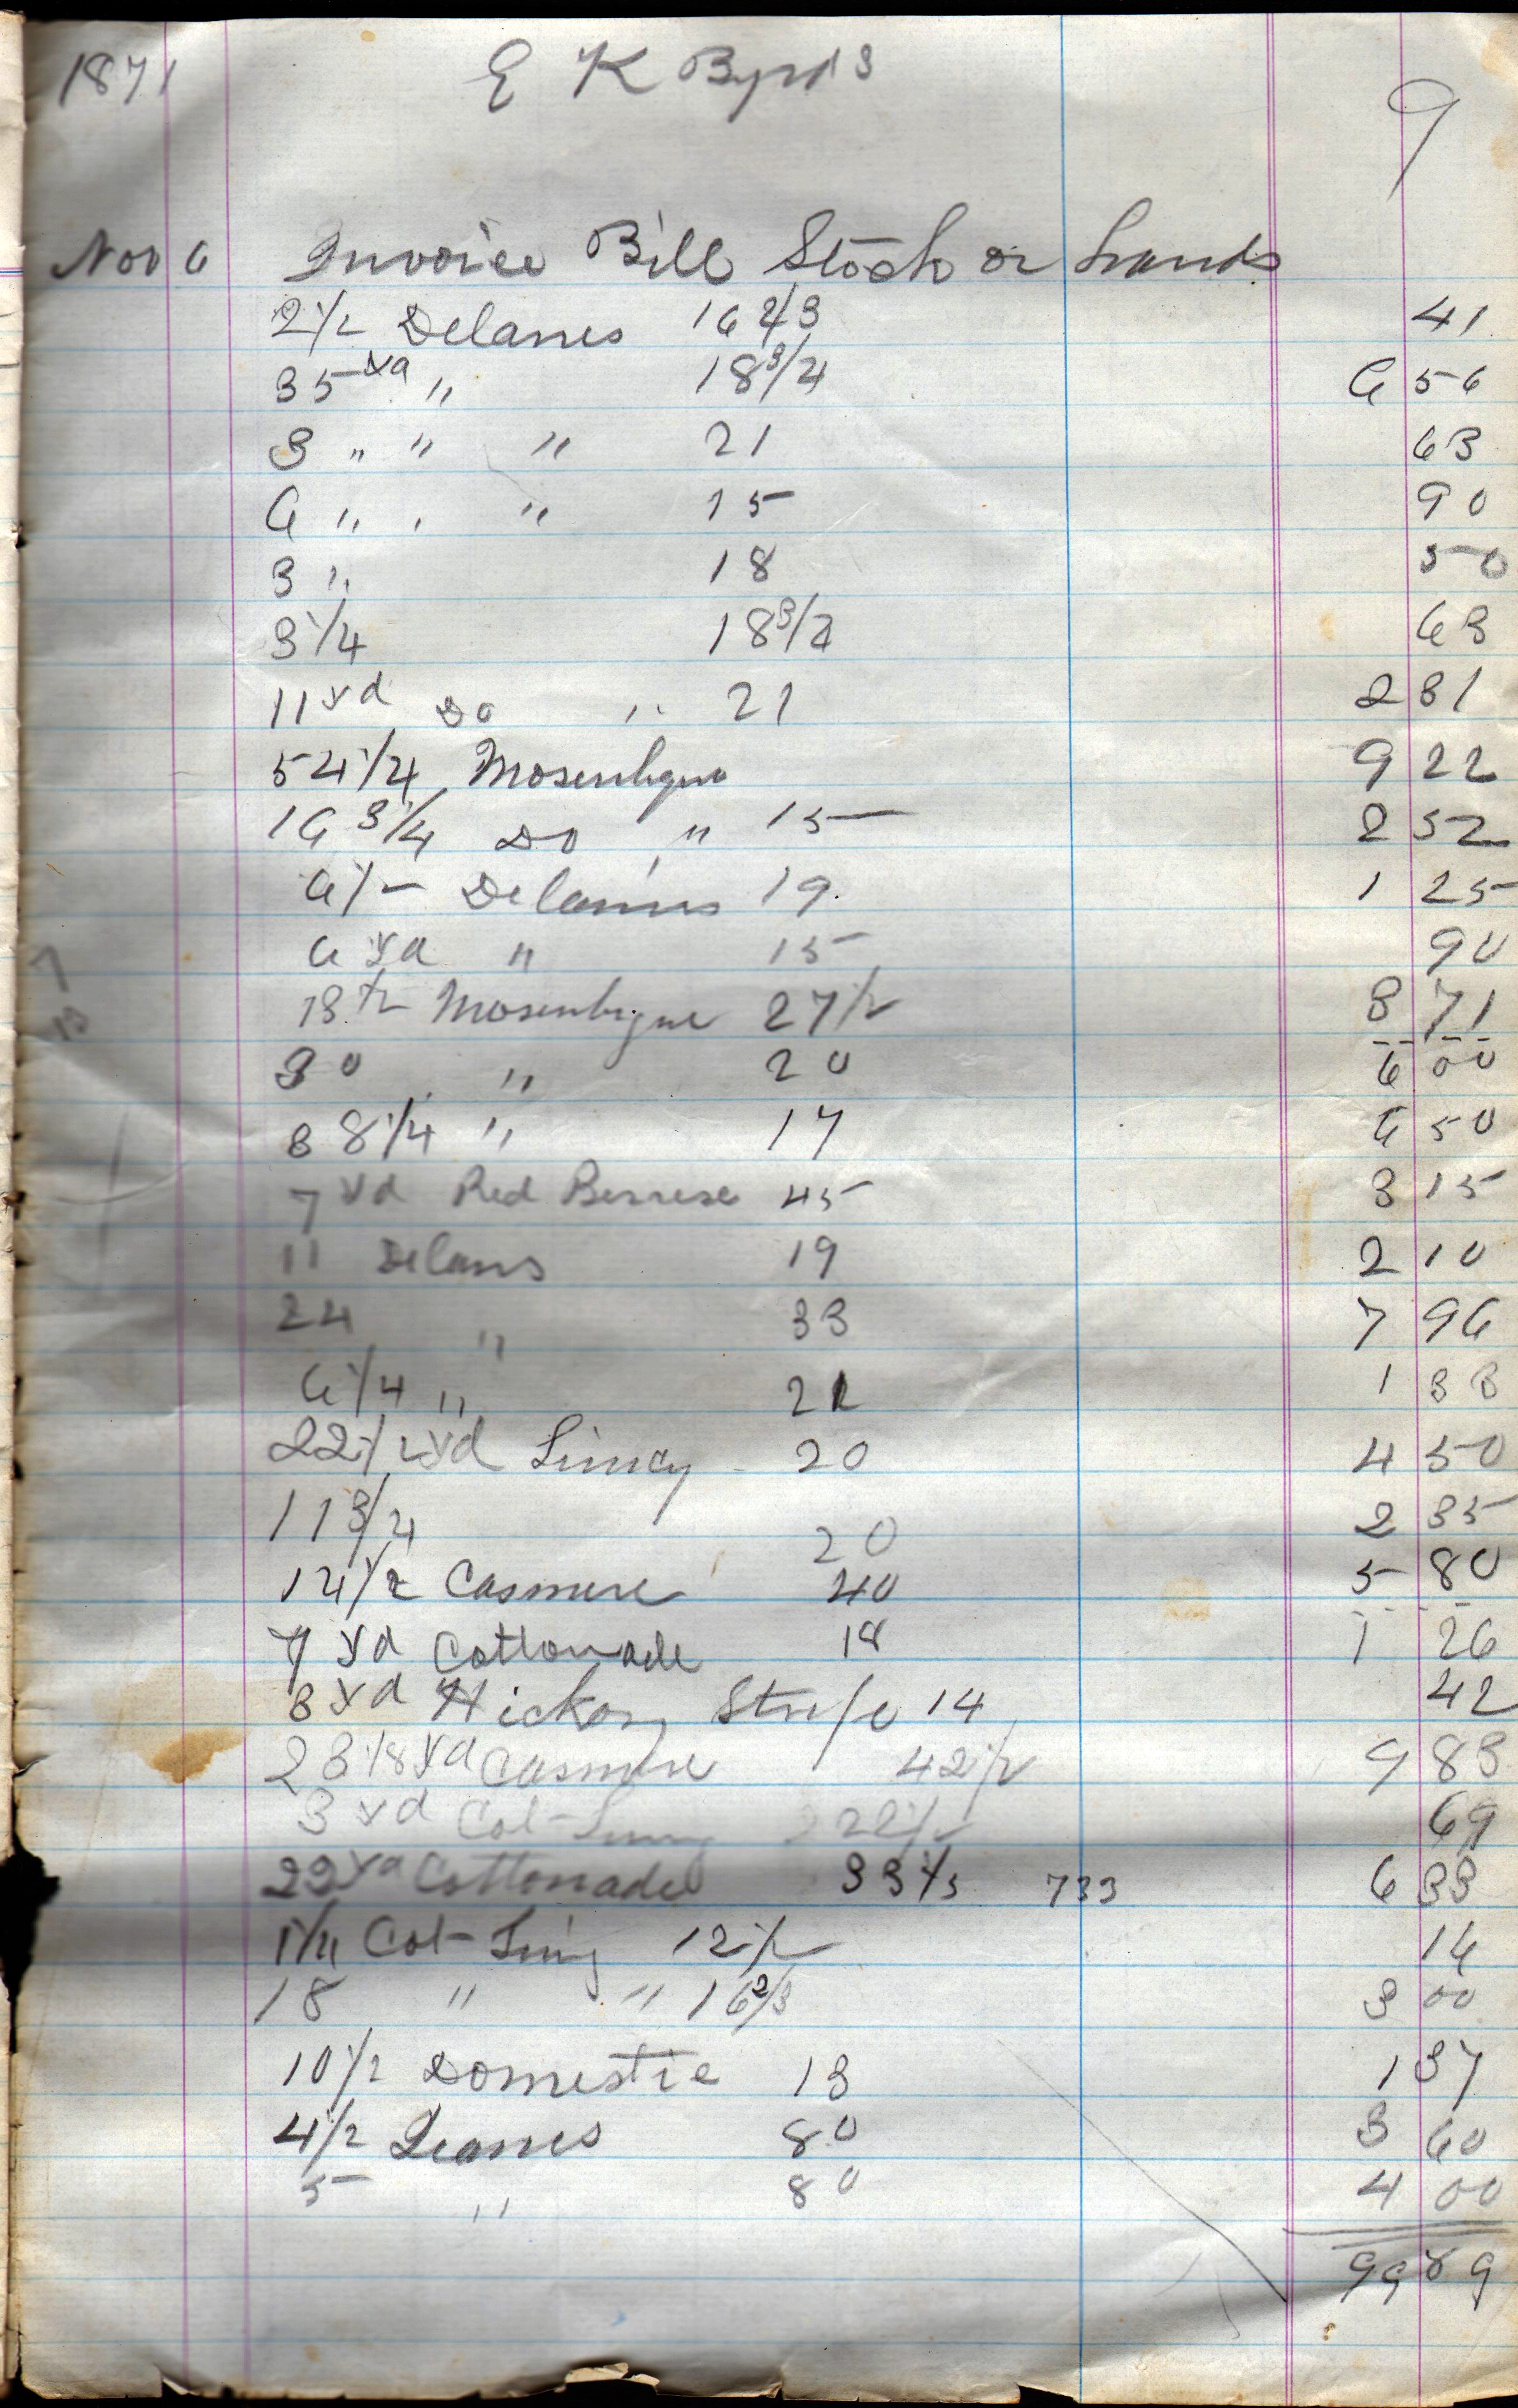 1871 E K Byrd's
9
Nov 6 Invoice Bill Stock on hands
2 1/2 Delanes 16 2/3 41
35 yd " 18 3/4 6 56
3 " " " 21 63
6 " " " 15 90
3 " 18 50
3 1/4 18 3/4 63
11 yd Do " 21 2 31
54 1/4 Mosenbique 9 22
16 3/4 Do " 15 2 52
6 1/2 Delanes 19 1 25
6 yd " 15 90
13 1/2 Mosenbique 27 1/2 3 71
30 " 20 6 00
38 1/4 " 17 6 50
7 yd Red 45 3 15
11 Delans 19 2 10
24 " 33 7 96
6 1/4 " 21 1 33
22 1/2 yd Lincy 20 4 50
11 3/4 20 2 35
14 1/2 Casmere 40 5 80
7 yd Cottonade 18 1 26
3 yd Hickory Stripe 14 42
23 1/8 yd Casmere 42 1/2 9 83
3 yd Cot- 22 1/2 69
22 yd Cottonade 33 1/3 733 6 33
1 1/4 Cot- 12 1/2 14
18 " " 16 2/3 3 00
10 1/2 Domestic 13 1 37
4 1/2 Jeanes 80 3 60
5 " 80 4 00
99 89